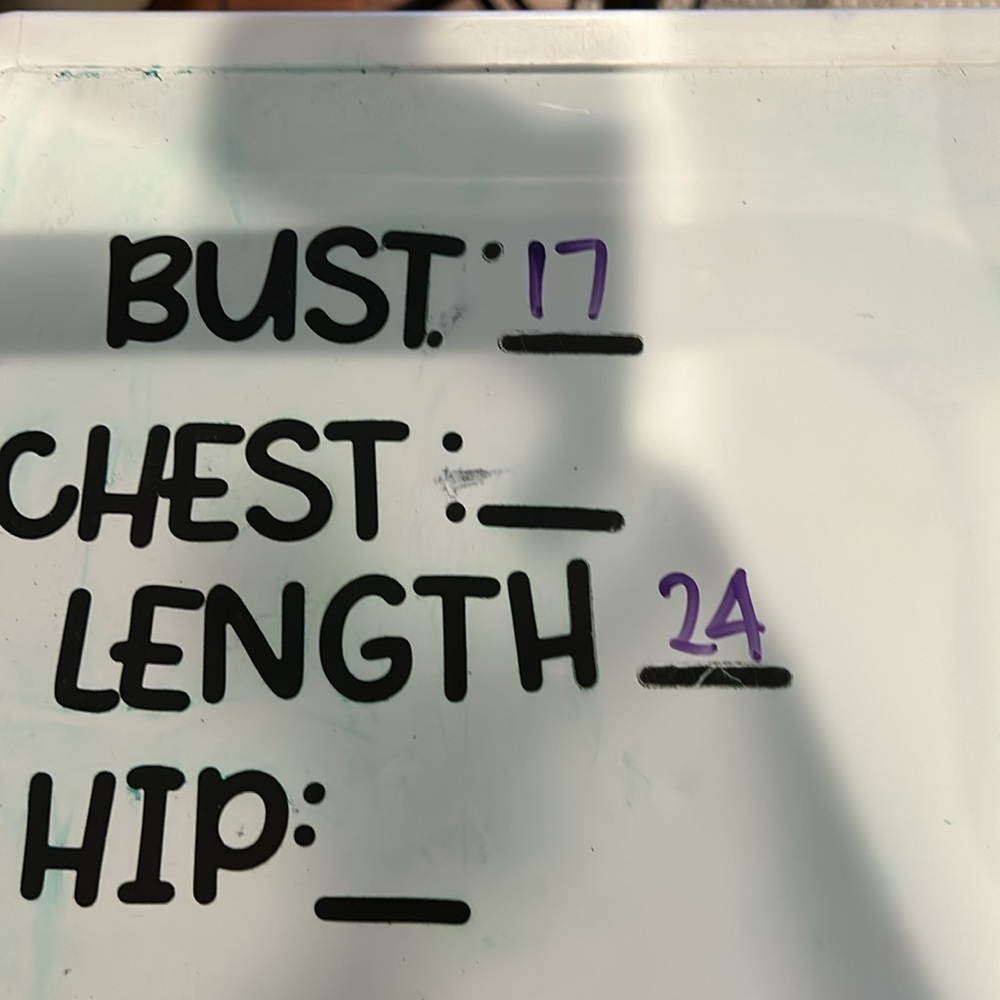 BUST: 17
CHEST: __
LENGTH 24
HIP: __